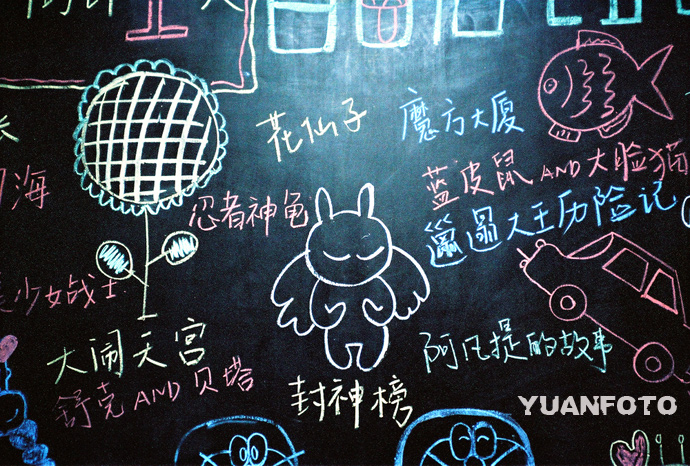 花仙子
魔方大厦
海
蓝皮鼠AND大脸猫
忍者神龟
邋遢大王历险记
美少女战士
大闹天宫
阿凡提的故事
舒克AND贝塔
封神榜
YUANFOTO